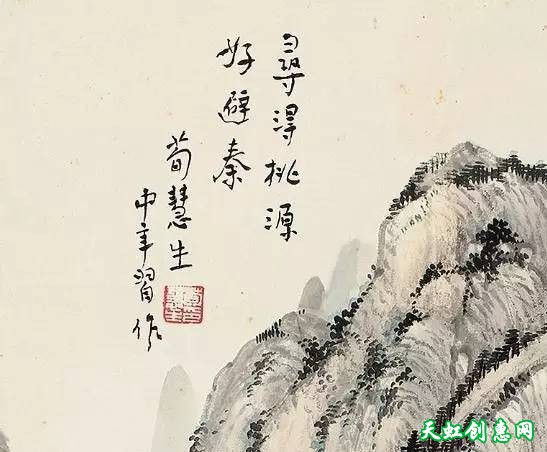 尋得桃源
好避秦
荀慧生
中年習作
天虹创意网